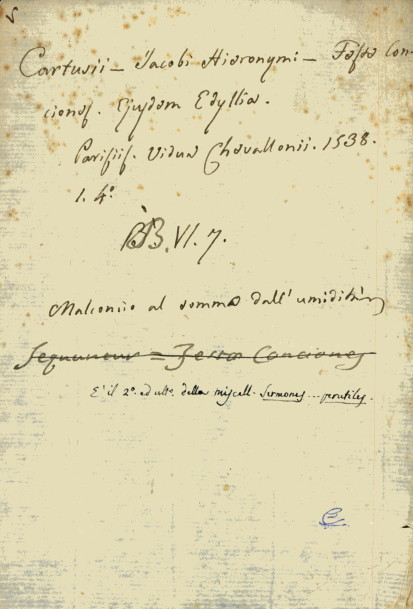 Cartusii - Jacobi Hieronymi - Festa Con-
cionef. Ejusdem Edyllia.
Parisiif. Vidua Chevallonii. 1538.
1. 4.º
BB. VI. 7.
Malconcio al sommo dall' umidità
Sequuntur = Festa Conciones
E' il 2º. ed ultº. della miscell. Sermones... perutiles.